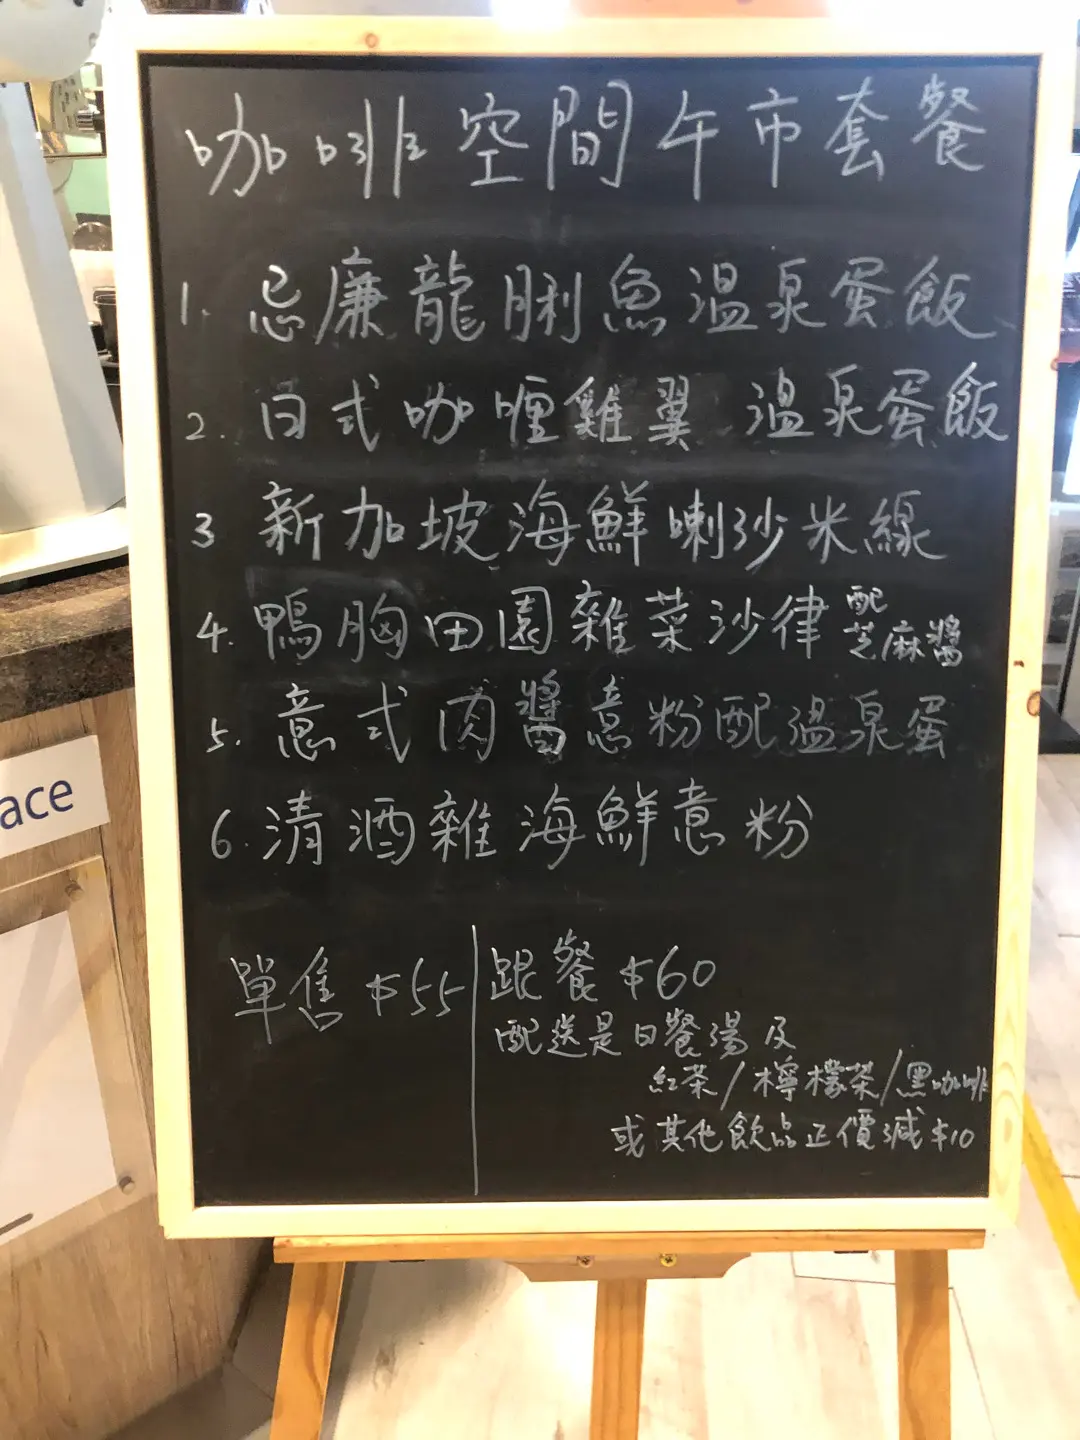 咖啡空間午市套餐
1. 忌廉龍脷魚溫泉蛋飯
2. 日式咖喱雞翼 溫泉蛋飯
3 新加坡海鮮喇沙米線
4. 鴨胸田園雜菜沙律 配芝麻醬
5. 意式肉醬意粉配溫泉蛋
6. 清酒雜海鮮意粉
單售 $55
跟餐 $60
配送是日餐湯及
紅茶/檸檬茶/黑咖啡
或其他飲品正價減$10
ace